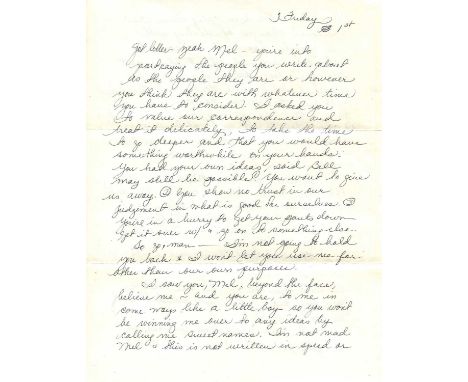 Friday
1st
Got letter yeah Mel - you're into
portraying the people you write about
to the people they are or however
you think they are with whatever time
you have to consider. I asked you
to value our correspondence and
treat it delicately, to take the time
to go deeper and that you would have
something worthwhile on your hands.
You had your own ideas, said Bill
may still be possible. You want to give
us away. You show no trust in our
judgement in what is good for ourselves.
You're in a hurry to get your goals down
get it over w/ & go on to something else.
So go, man — I'm not going to hold
you back & I won't let you use me for
other than our own purposes.
I saw you, Mel, beyond the face,
believe me - and you are, to me in
some ways like a little boy so you won't
be winning me over to any ideas by
calling me sweet names. I'm not mad
Mel & this is not written in speed or